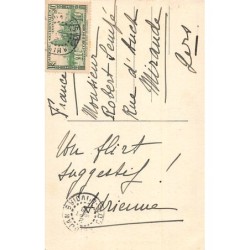 Monsieur
Robert Senfé
Rue d'Auch
Mirande
Gers
(France)
Un flirt
suggestif !
Adrienne